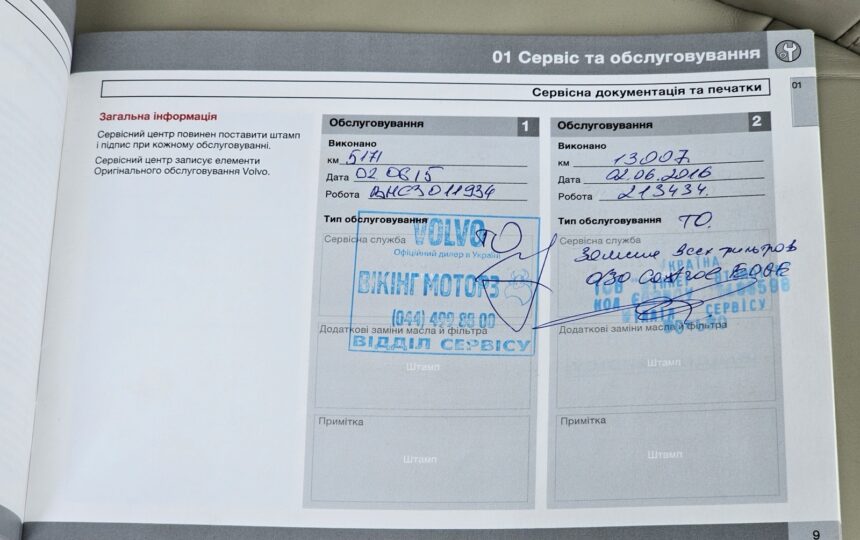 01 Сервіс та обслуговування
Сервісна документація та печатки
01
Загальна інформація
Сервісний центр повинен поставити штамп
і підпис при кожному обслуговуванні.
Сервісний центр записує елементи
Оригінального обслуговування Volvo.
Обслуговування 1
Виконано
км 5171
Дата 02 08 15
Робота
Тип обслуговування ТО
Сервісна служба
VOLVO
Офіційний дилер в Україні
ВІКІНГ МОТОРЗ
(044) 499 88 00
ВІДДІЛ СЕРВІСУ
Додаткові заміни масла й фільтра
Штамп
Примітка
Штамп
Обслуговування 2
Виконано
км 13007
Дата 02.06.2016
Робота 213434.
Тип обслуговування ТО.
Сервісна служба
всех фильтров
УКРАЇНА
КОД
СЕРВІСУ
Додаткові заміни масла й фільтра
Штамп
Примітка
Штамп
9